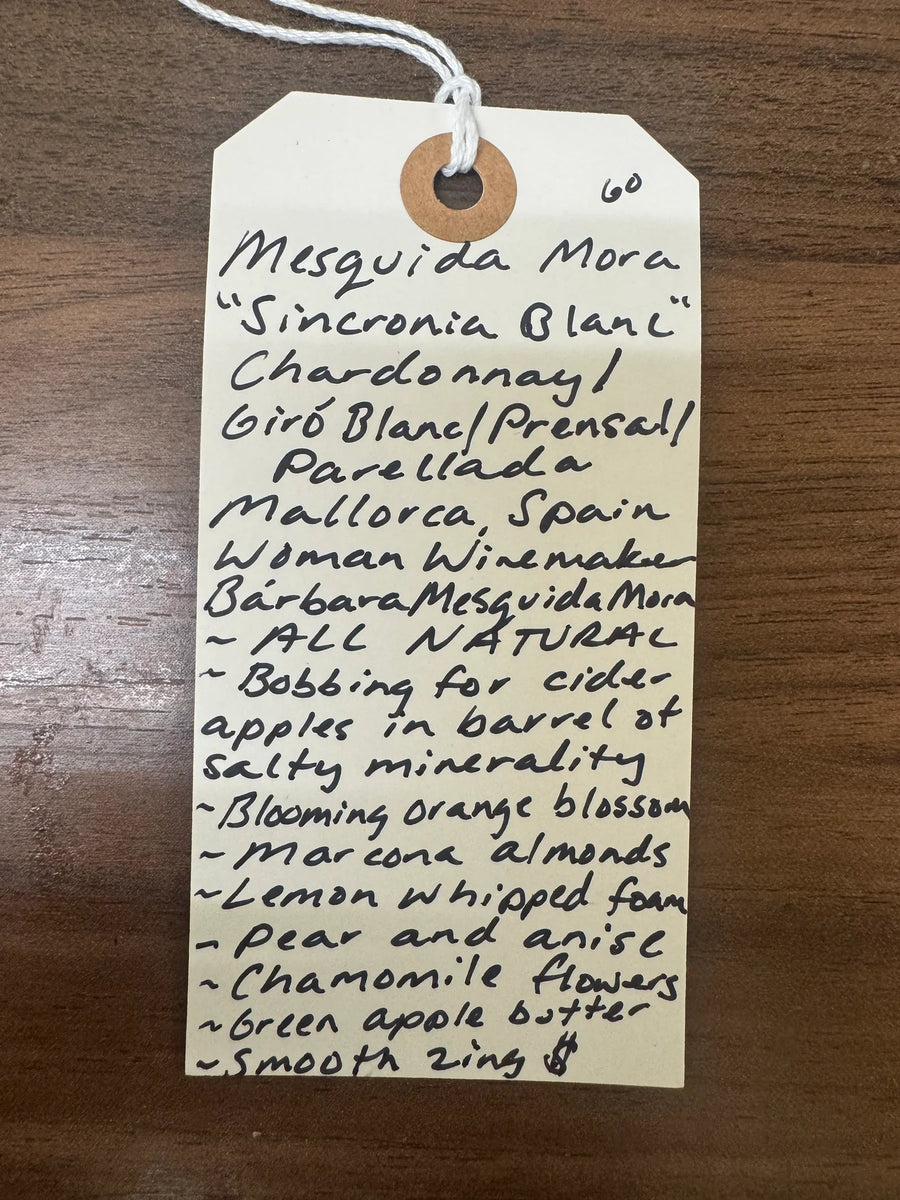 60
Mesquida Mora
"Sincronia Blanc"
Chardonnay/
Giró Blanc/Prensal/
Parellada
Mallorca, Spain
Woman Winemaker
Bárbara Mesquida Mora
~ ALL NATURAL
~ Bobbing for cider
apples in barrel of
salty minerality
~ Blooming orange blossom
~ Marcona almonds
~ Lemon whipped foam
~ Pear and anise
~ Chamomile flowers
~ Green apple butter
~ Smooth zing $